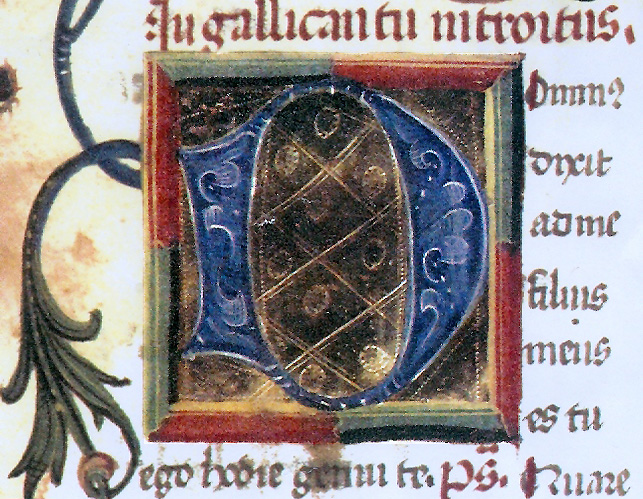 In gallicantu introitus.
Dominus
dixit
ad me
filius
meus
es tu
ego hodie genui te. Ps. Quare